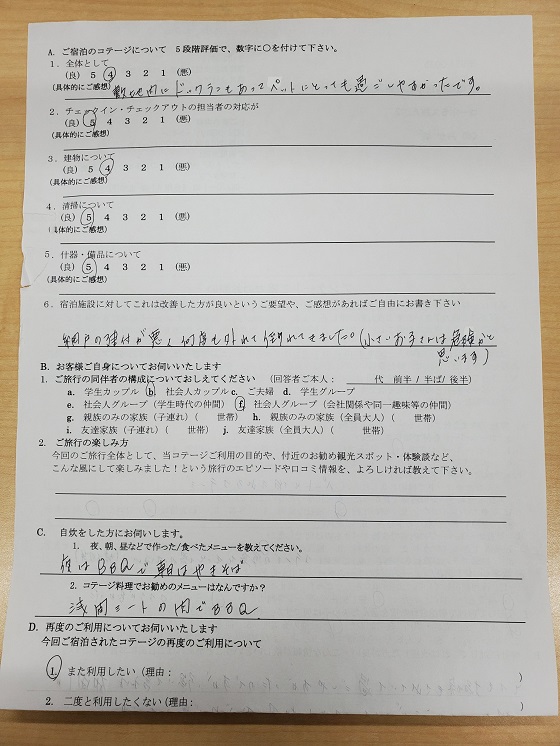 A. ご宿泊のコテージについて 5段階評価で、数字に○を付けて下さい。
1. 全体として
(良) 5 4 3 2 1 (悪)
(具体的にご感想) 敷地内にドックランもあってペットにとっても過ごしやすかったです。
2. チェックイン・チェックアウトの担当者の対応が
(良) 5 4 3 2 1 (悪)
(具体的にご感想)
3. 建物について
(良) 5 4 3 2 1 (悪)
(具体的にご感想)
4. 清掃について
(良) 5 4 3 2 1 (悪)
(具体的にご感想)
5. 什器・備品について
(良) 5 4 3 2 1 (悪)
(具体的にご感想)
6. 宿泊施設に対してこれは改善した方が良いというご要望や、ご感想があればご自由にお書き下さい
網戸の建付が悪く何度も外れて倒れてきました。(小さいお子さんは危険かと
思います)
B. お客様ご自身についてお伺いいたします
1. ご旅行の同伴者の構成についておしえてください (回答者ご本人: 代 前半 / 半ば / 後半)
a. 学生カップル b. 社会人カップル c. ご夫婦 d. 学生グループ
e. 社会人グループ(学生時代の仲間) f. 社会人グループ(会社関係や同一趣味等の仲間)
g. 親族のみの家族(子連れ)( 世帯) h. 親族のみの家族(全員大人)( 世帯)
i. 友達家族(子連れ)( 世帯) j. 友達家族(全員大人)( 世帯)
2. ご旅行の楽しみ方
今回のご旅行全体として、当コテージご利用の目的や、付近のお勧め観光スポット・体験談など、
こんな風にして楽しみました！という旅行のエピソードや口コミ情報を、よろしければ教えて下さい。
C. 自炊をした方にお伺いします。
1. 夜、朝、昼などで作った/食べたメニューを教えてください。
夜はBBQで朝はやきそば
2. コテージ料理でお勧めのメニューはなんですか？
浅間ミートの肉でBBQ
D. 再度のご利用についてお伺いいたします
今回ご宿泊されたコテージの再度のご利用について
1. また利用したい(理由: )
2. 二度と利用したくない(理由: )